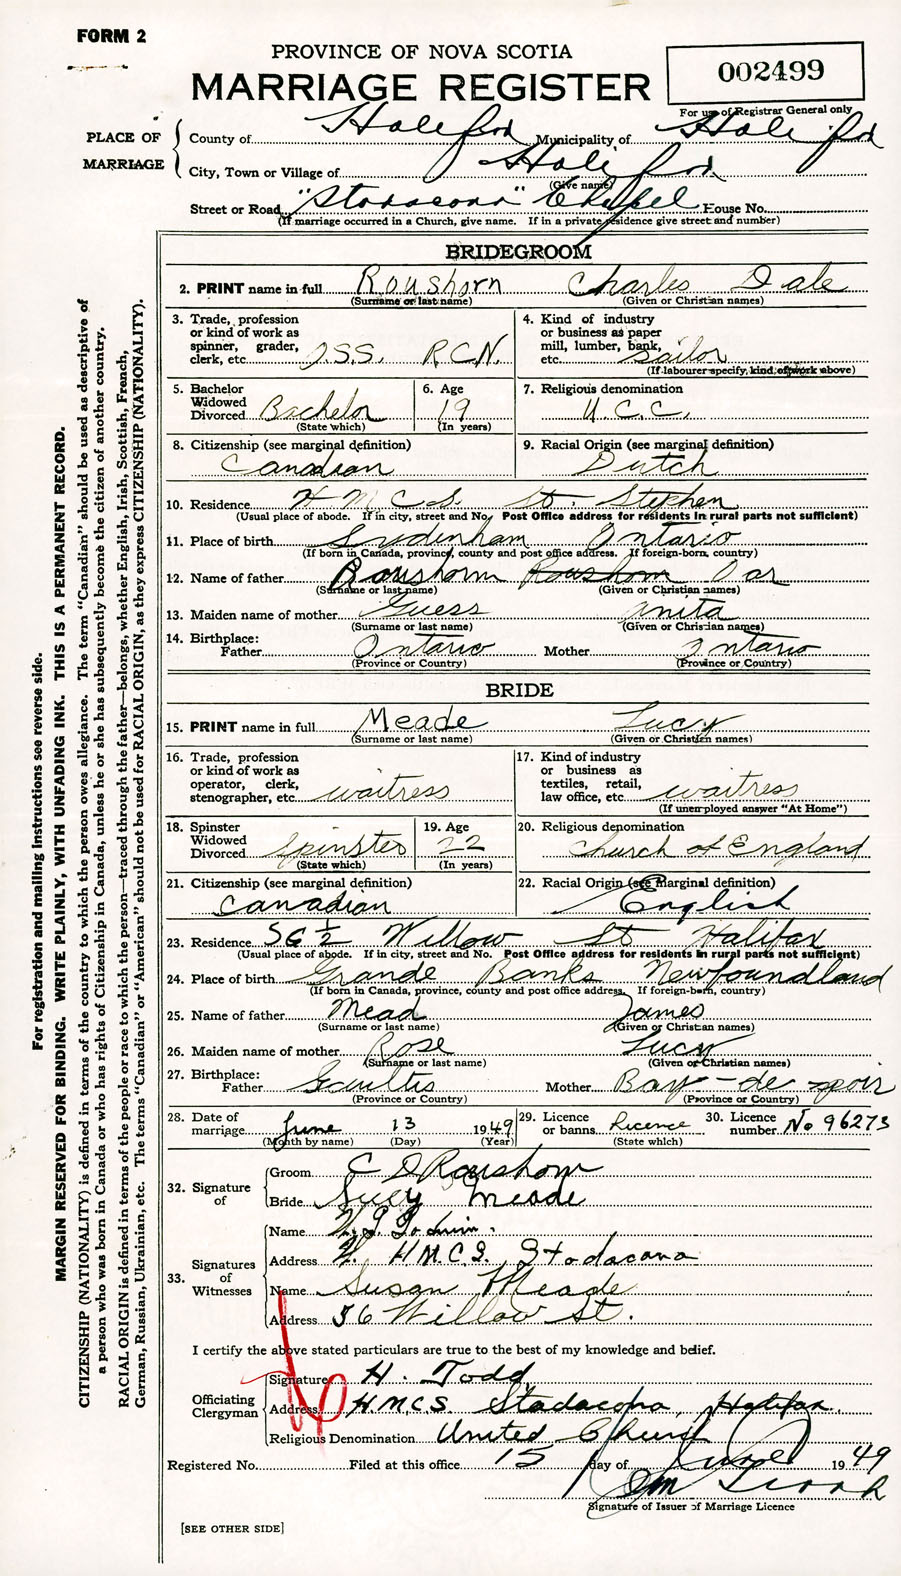 FORM 2
PROVINCE OF NOVA SCOTIA
MARRIAGE REGISTER
002499
For use of Registrar General only
PLACE OF MARRIAGE
County of Halifax Municipality of Halifax
City, Town or Village of Halifax
(Give name)
Street or Road "Stadacona" Chapel House No.
(If marriage occurred in a Church, give name. If in a private residence give street and number)
BRIDEGROOM
2. PRINT name in full Roushorn Charles Dale
(Surname or last name) (Given or Christian names)
3. Trade, profession or kind of work as spinner, grader, clerk, etc. O.S.S. R.C.N.
4. Kind of industry or business as paper mill, lumber, bank, etc. Sailor
(If labourer specify, kind of work above)
5. Bachelor Widowed Divorced Bachelor
(State which)
6. Age 19
(In years)
7. Religious denomination U.C.C.
8. Citizenship (see marginal definition) Canadian
9. Racial Origin (see marginal definition) Dutch
10. Residence H M C S St. Stephen
(Usual place of abode. If in city, street and No. Post Office address for residents in rural parts not sufficient)
11. Place of birth Sydenham Ontario
(If born in Canada, province, county and post office address. If foreign-born, country)
12. Name of father Roushorn Roushorn
(Surname or last name) (Given or Christian names)
13. Maiden name of mother Guess Anita
(Surname or last name) (Given or Christian names)
14. Birthplace: Father Ontario Mother Ontario
(Province or Country) (Province or Country)
BRIDE
15. PRINT name in full Meade Lucy
(Surname or last name) (Given or Christian names)
16. Trade, profession or kind of work as operator, clerk, stenographer, etc. waitress
17. Kind of industry or business as textiles, retail, law office, etc. waitress
(If unemployed answer "At Home")
18. Spinster Widowed Divorced Spinster
(State which)
19. Age 22
(In years)
20. Religious denomination Church of England
21. Citizenship (see marginal definition) Canadian
22. Racial Origin (see marginal definition) English
23. Residence 56 1/2 Willow St Halifax
(Usual place of abode. If in city, street and No. Post Office address for residents in rural parts not sufficient)
24. Place of birth Grande Banks Newfoundland
(If born in Canada, province, county and post office address. If foreign-born, country)
25. Name of father Mead James
(Surname or last name) (Given or Christian names)
26. Maiden name of mother Rose Lucy
(Surname or last name) (Given or Christian names)
27. Birthplace: Father Gaultis Mother Bay-de spoir
(Province or Country) (Province or Country)
28. Date of marriage June 13 1949
(Month by name) (Day) (Year)
29. Licence or banns Licence
(State which)
30. Licence number No 96273
32. Signature of
Groom C D Roushorn
Bride Lucy Meade
33. Signatures of Witnesses
Name
Address H.M.C.S. Stadacona
Name Susan Meade
Address 56 Willow St.
I certify the above stated particulars are true to the best of my knowledge and belief.
Officiating Clergyman
Signature H. Todd
Address H.M.C.S. Stadacona, Halifax
Religious Denomination United Church
Registered No. Filed at this office 15 day of June 1949
Signature of Issuer of Marriage Licence
[SEE OTHER SIDE]
For registration and mailing instructions see reverse side.
MARGIN RESERVED FOR BINDING. WRITE PLAINLY, WITH UNFADING INK. THIS IS A PERMANENT RECORD.
CITIZENSHIP (NATIONALITY) is defined in terms of the country to which the person owes allegiance. The term "Canadian" should be used as descriptive of
a person who was born in Canada or who has rights of Citizenship in Canada, unless he or she has subsequently become the citizen of another country.
RACIAL ORIGIN is defined in terms of the people or race to which the person—traced through the father—belongs, whether English, Irish, Scottish, French,
German, Russian, Ukrainian, etc. The terms "Canadian" or "American" should not be used for RACIAL ORIGIN, as they express CITIZENSHIP (NATIONALITY).